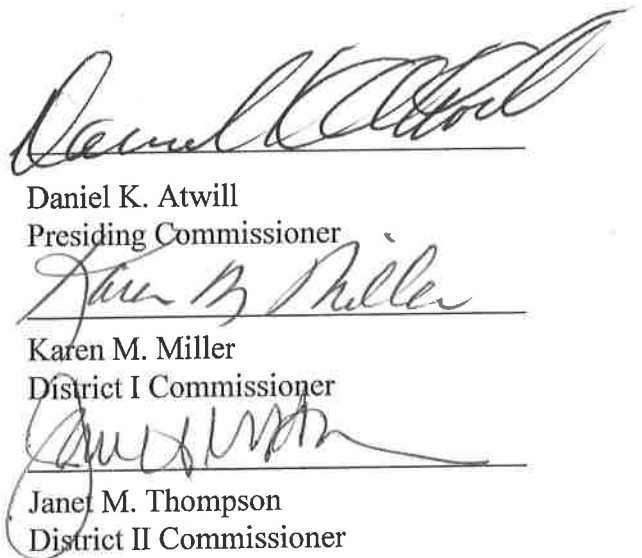 Daniel K Atwill
Daniel K. Atwill
Presiding Commissioner
Karen M Miller
Karen M. Miller
District I Commissioner
Janet M. Thompson
District II Commissioner